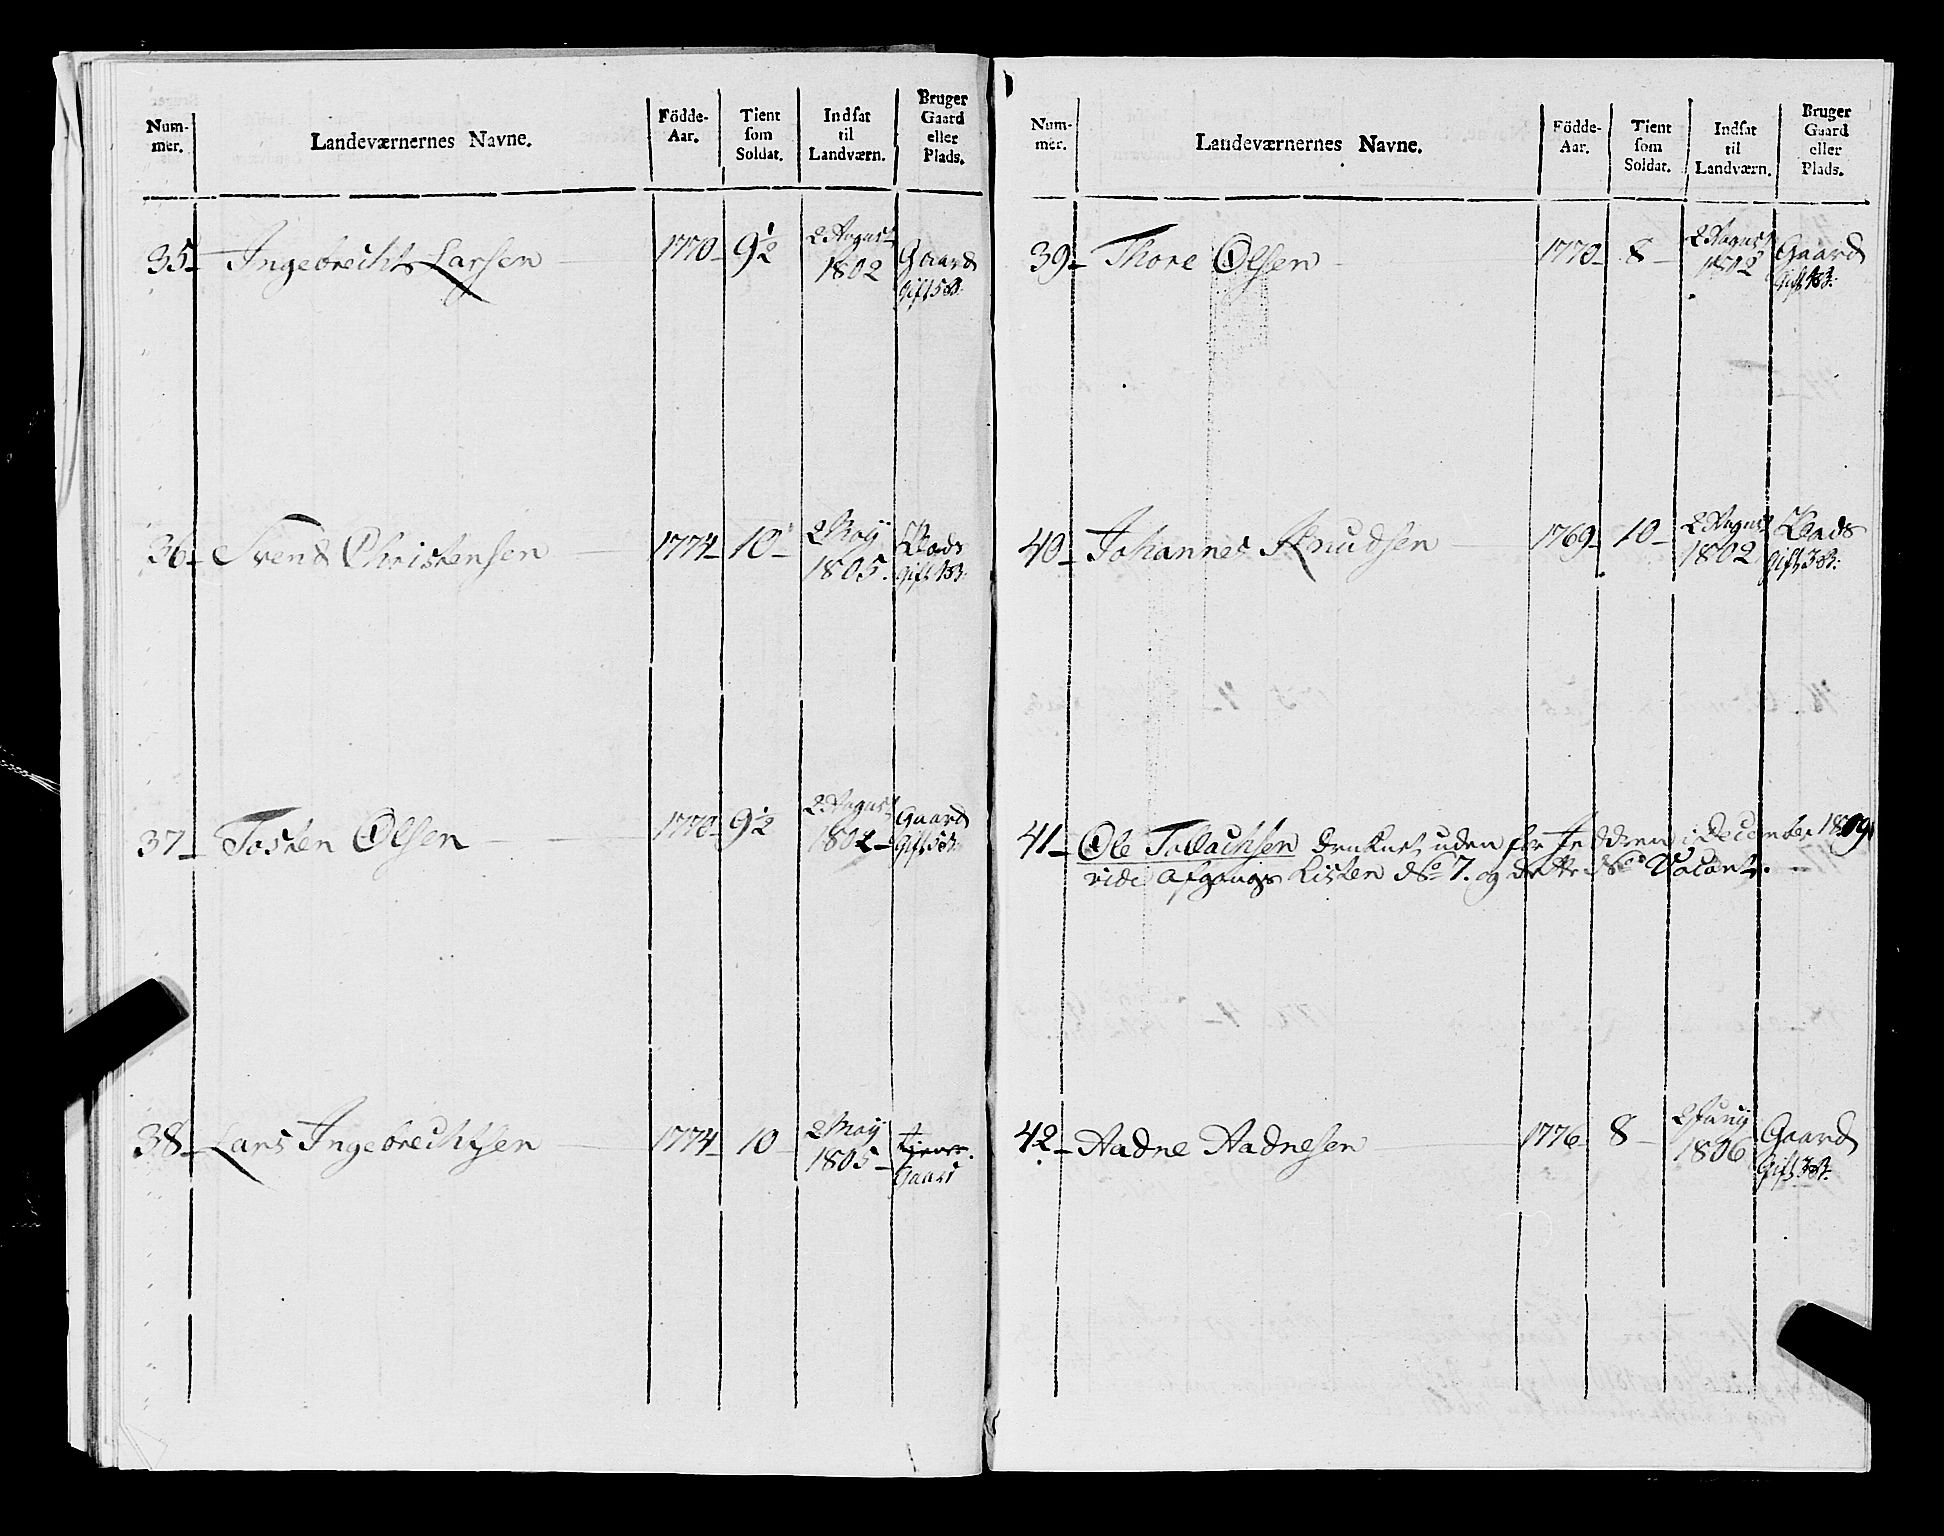 Num-
mer.
Landeværnernes Navne.
Födde-
Aar.
Tient
som
Soldat.
Indsat
til
Landværn.
Bruger
Gaard
eller
Plads.
35 Ingebrecht Larsen 1770 9½ 2 August
1802 Gaard
Gift
36 Svend Christensen 1774 10 2 May
1805. Plads
Gift
37 Tosten Olsen 1770 9½ 2 August
1802 Gaard
Gift
38 Lars Ingebrechtsen 1774 10 2 May
1805 tjener
Gaard
Num-
mer.
Landeværnernes Navne.
Födde-
Aar.
Tient
som
Soldat.
Indsat
til
Landværn.
Bruger
Gaard
eller
Plads.
39 Thore Olsen 1770 8 2 August
1802 Gaard
Gift
40 Johannes Knudsen 1769 10 2 August
1802 Plads
Gift 3 B:
41 Ole Tollachsen druknet uden for Jedderen i December 1809
vide Afgangs Listen No 7. og dette No Vacant.
42 Aadne Aadnesen 1776 8 2 Juny
1806 Gaard
Gift 3 B: